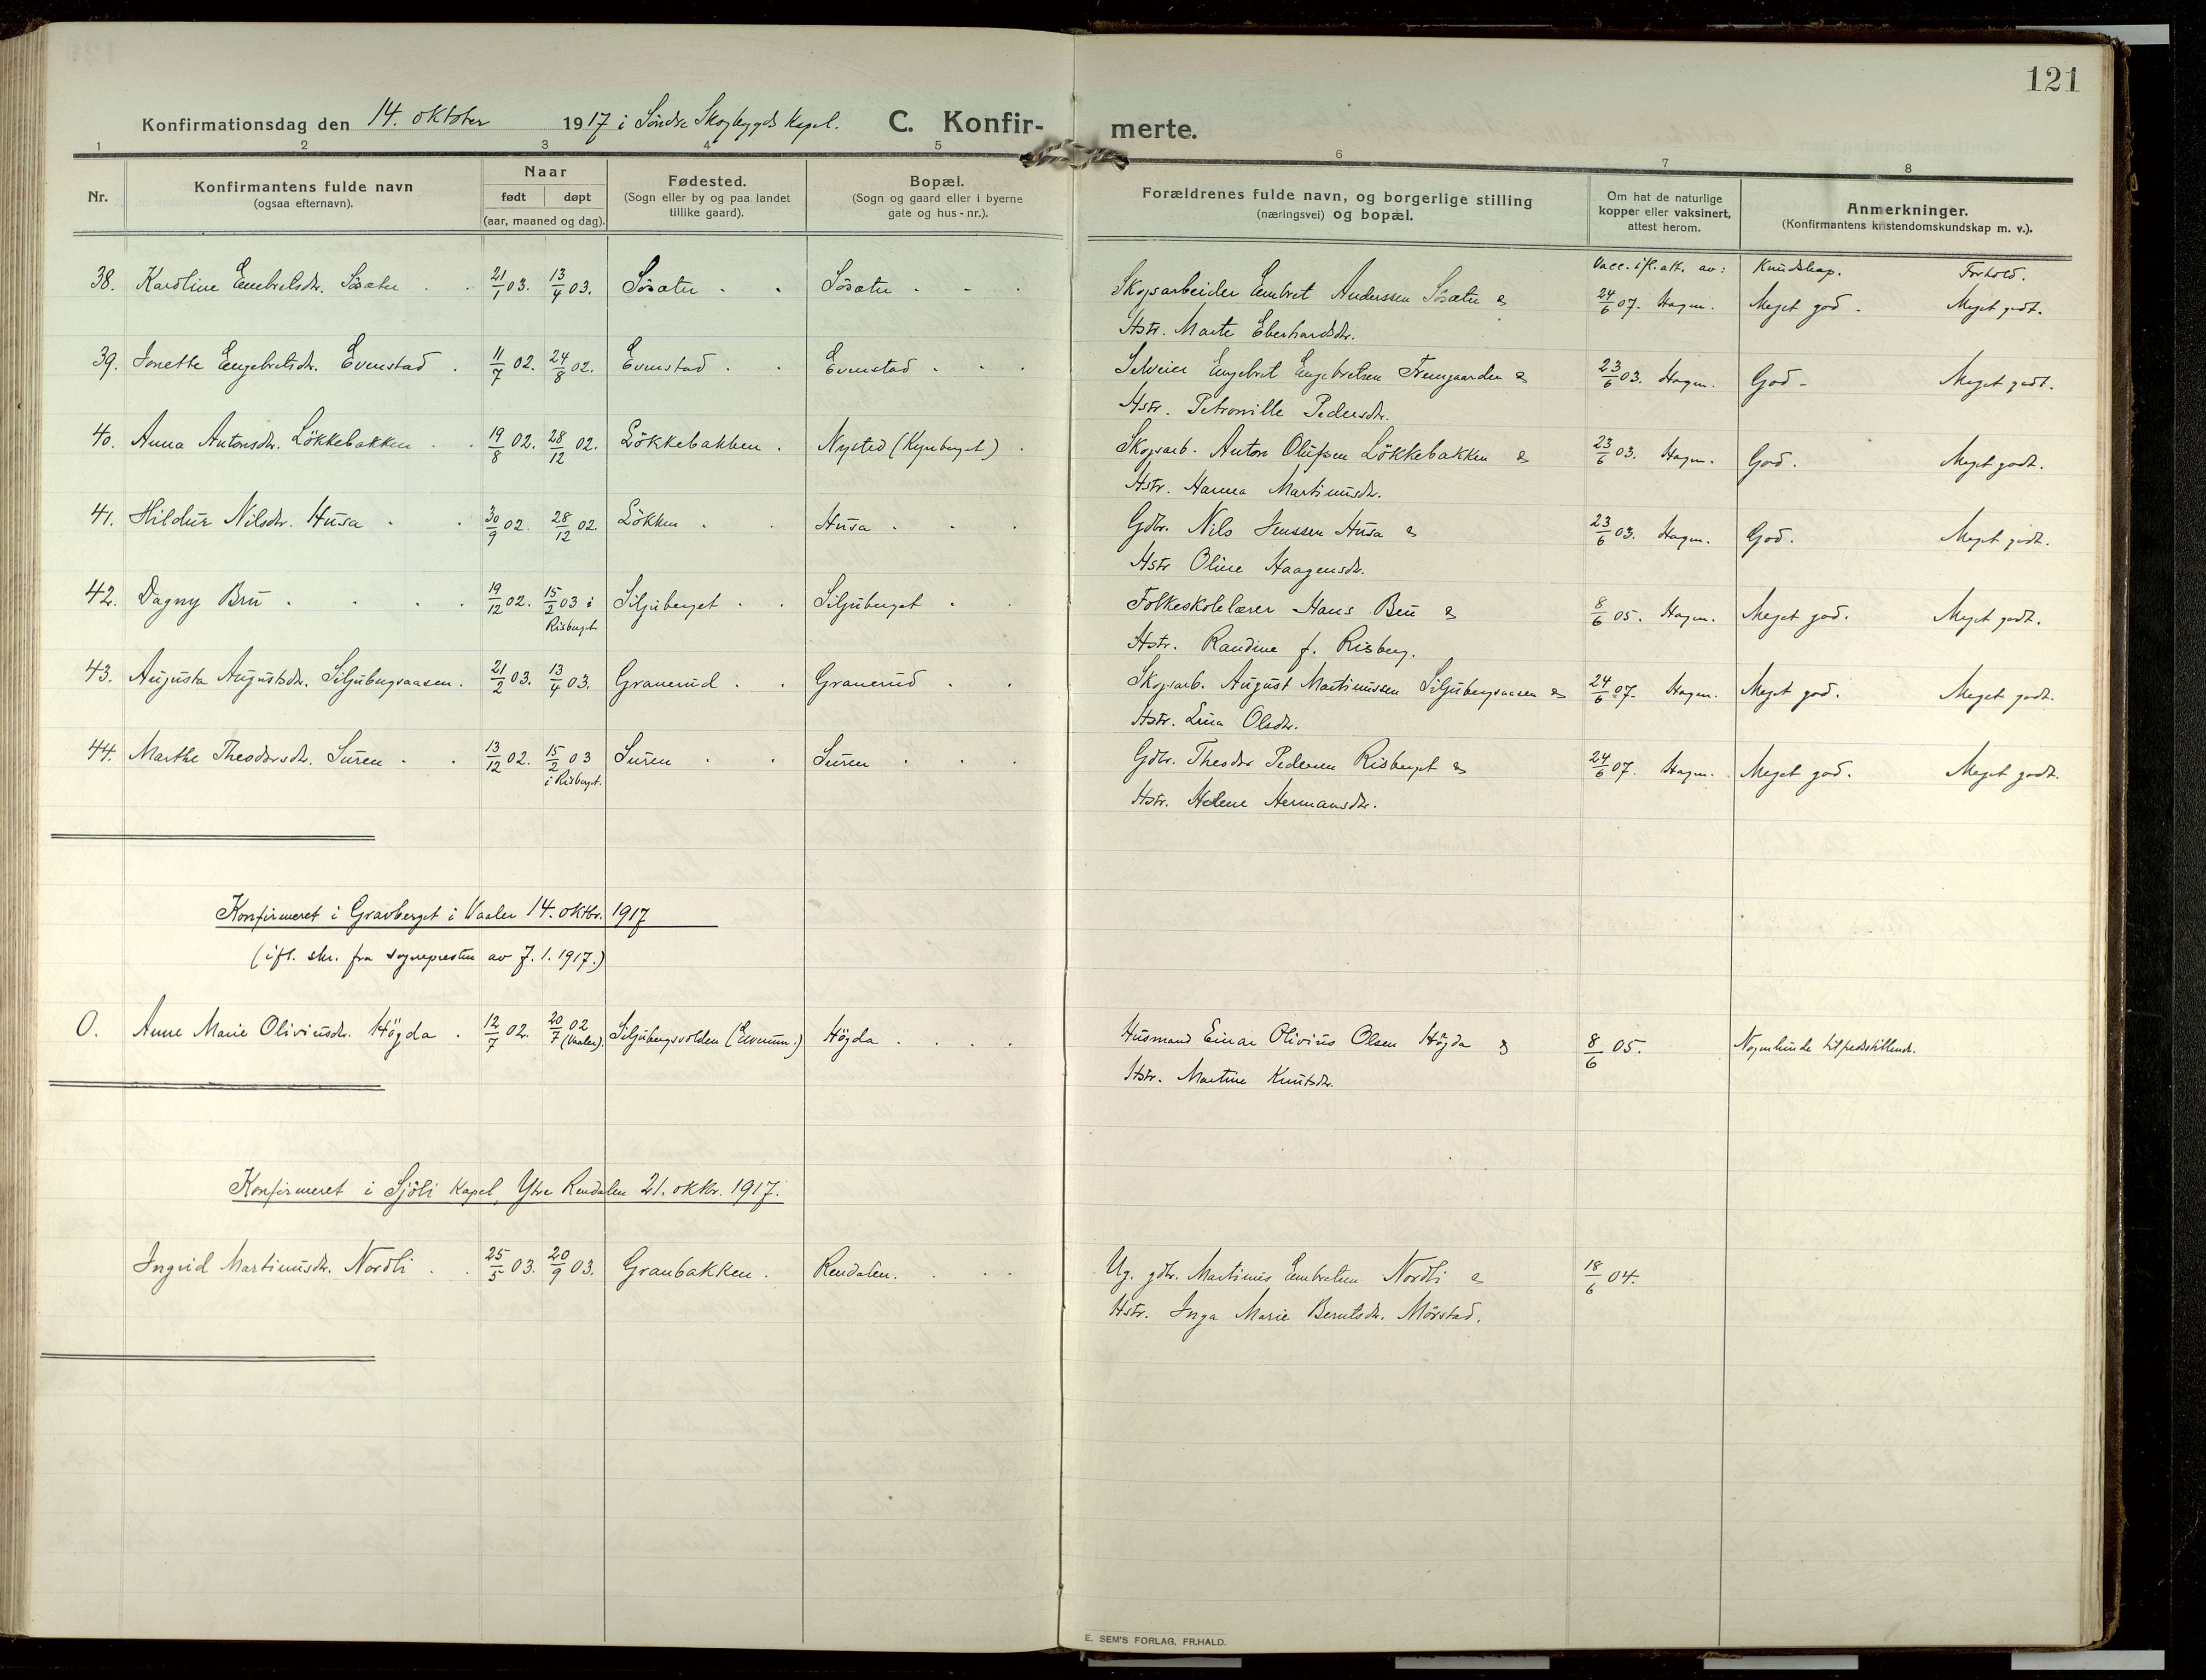 121
Konfirmationsdag den 14. oktober 1917 i Søndre Skogbygds Kapel. C. Konfir- merte.
1 2 3 4 5 6 7 8
Nr. Konfirmantens fulde navn (ogsaa efternavn). Naar født døpt (aar, maaned og dag). Fødested. (Sogn eller by og paa landet tillike gaard). Bopæl. (Sogn og gaard eller i byerne gate og hus-nr.). Forældrenes fulde navn, og borgerlige stilling (næringsvei) og bopæl. Om hat de naturlige kopper eller vaksinert, attest herom. Anmerkninger. (Konfirmantens kristendomskundskap m. v.).
Vacc. ifl. att. av: Kundskap. Forhold.
38. Karoline Embretsdr. Søsæter 21/1 03. 13/4 03. Søsæter Søsæter Skogsarbeider Embret Anderssen Søsæter & 24/6 07. Hagen. Meget god. Meget godt.
Hstr. Marte Eberhardsdr.
39. Jonette Engebretsdr. Evenstad 11/7 02. 24/8 02. Evenstad Evenstad Selveier Engebret Engebretsen Fremgaarden & 23/6 03. Hagen. God. Meget godt.
Hstr. Petronille Pedersdr.
40. Anna Antonsdr. Løkkebakken 19/8 02. 28/12 02. Løkkebakken Nysted (Kynberget) Skogsarb. Anton Olufsen Løkkebakken & 23/6 03. Hagen. God. Meget godt.
Hstr. Hanna Martinusdr.
41. Hildur Nilsdr. Husa 30/9 02. 28/12 02 Løkken Husa Gdbr. Nils Jenssen Husa & 23/6 03. Hagen. God. Meget godt.
Hstr Oline Haagensdr.
42. Dagny Bru 19/12 02. 15/2 03 i Risberget Siljuberget Siljuberget Folkeskolelærer Hans Bru & 8/6 05. Hagen. Meget god. Meget godt.
Hstr. Randine f. Risberg.
43. Augusta Augustsdr. Siljubergsaasen. 21/2 03. 13/4 03. Granerud Granerud Skogsarb. August Martinussen Siljubergsaasen & 24/6 07. Hagen. Meget god. Meget godt.
Hstr. Lina Olsdr.
44. Marthe Theodorsdr. Suren 13/12 02. 15/2 03 i Risberget. Suren Suren Gdbr. Theodor Pedersen Risberget & 24/6 07. Hagen. Meget god. Meget godt.
Hstr. Helene Hermansdr.
Konfirmeret i Gravberget i Vaaler 14. oktbr. 1917
(ifl. skr. fra sognepresten av 7.1.1917.)
O. Anne Marie Oliviusdr. Høgda 12/7 02. 20/7 02 (Vaaler). Siljubergsvolden (Elverum.) Høgda Husmand Einar Olivius Olsen Høgda & 8/6 05. Nogenlunde tilfredsstillende.
Hstr. Martine Knutsdr.
Konfirmeret i Sjøli Kapel, Ytre Rendalen 21. oktbr. 1917.
Ingrid Martinusdr. Nordli 25/5 03. 20/9 03. Granbakken. Rendalen. Ug. gdbr. Martinus Embretsen Nordli & 18/6 04.
Hstr. Inga Marie Berntsdr. Mørstad.
E. SEM'S FORLAG, FR.HALD.